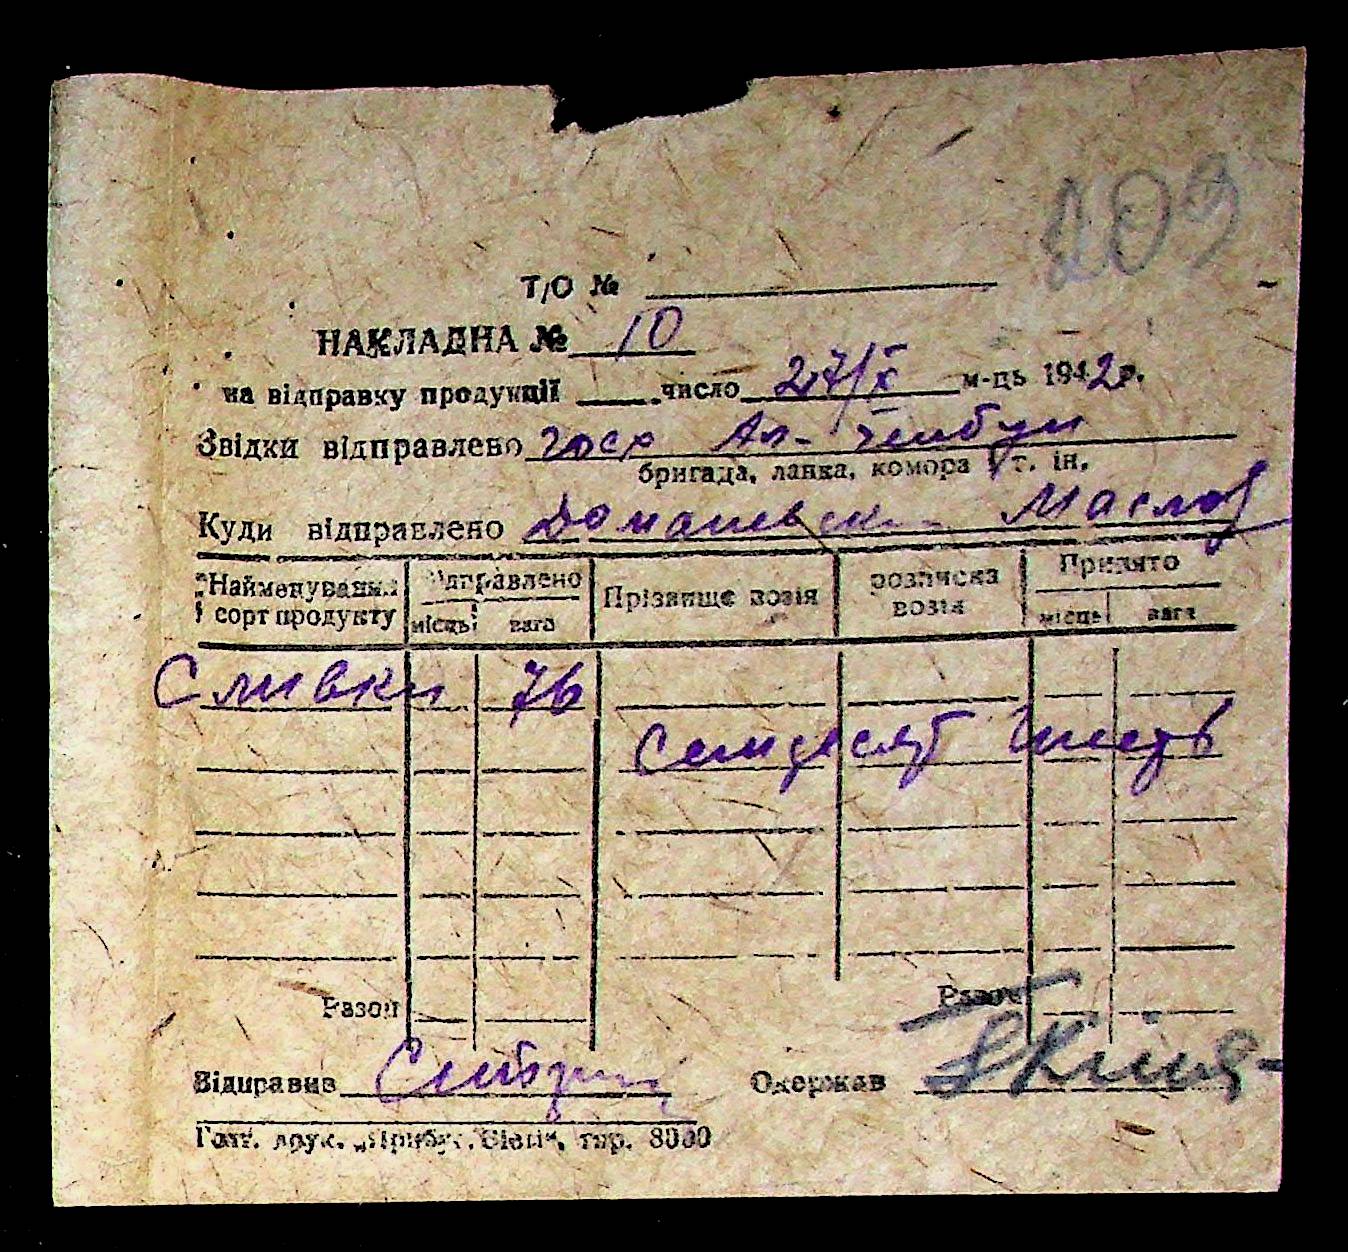 209
Т/О №
НАКЛАДНА № 10
на відправку продукції число 27/X м-ць 1942 р.
Звідки відправлено госх Ал-
бригада, ланка, комора і т. ін.
Куди відправлено Маслоз
Найменування сорт продукту
Відправлено
місць вага
Прізвище возія
розписка возія
Принято
місць вага
Сливки 76
Семдесят шесть
Разом Разом
Відправив
Одержав
Голт. друк. „Прибуг. Вісті“, тир. 8000